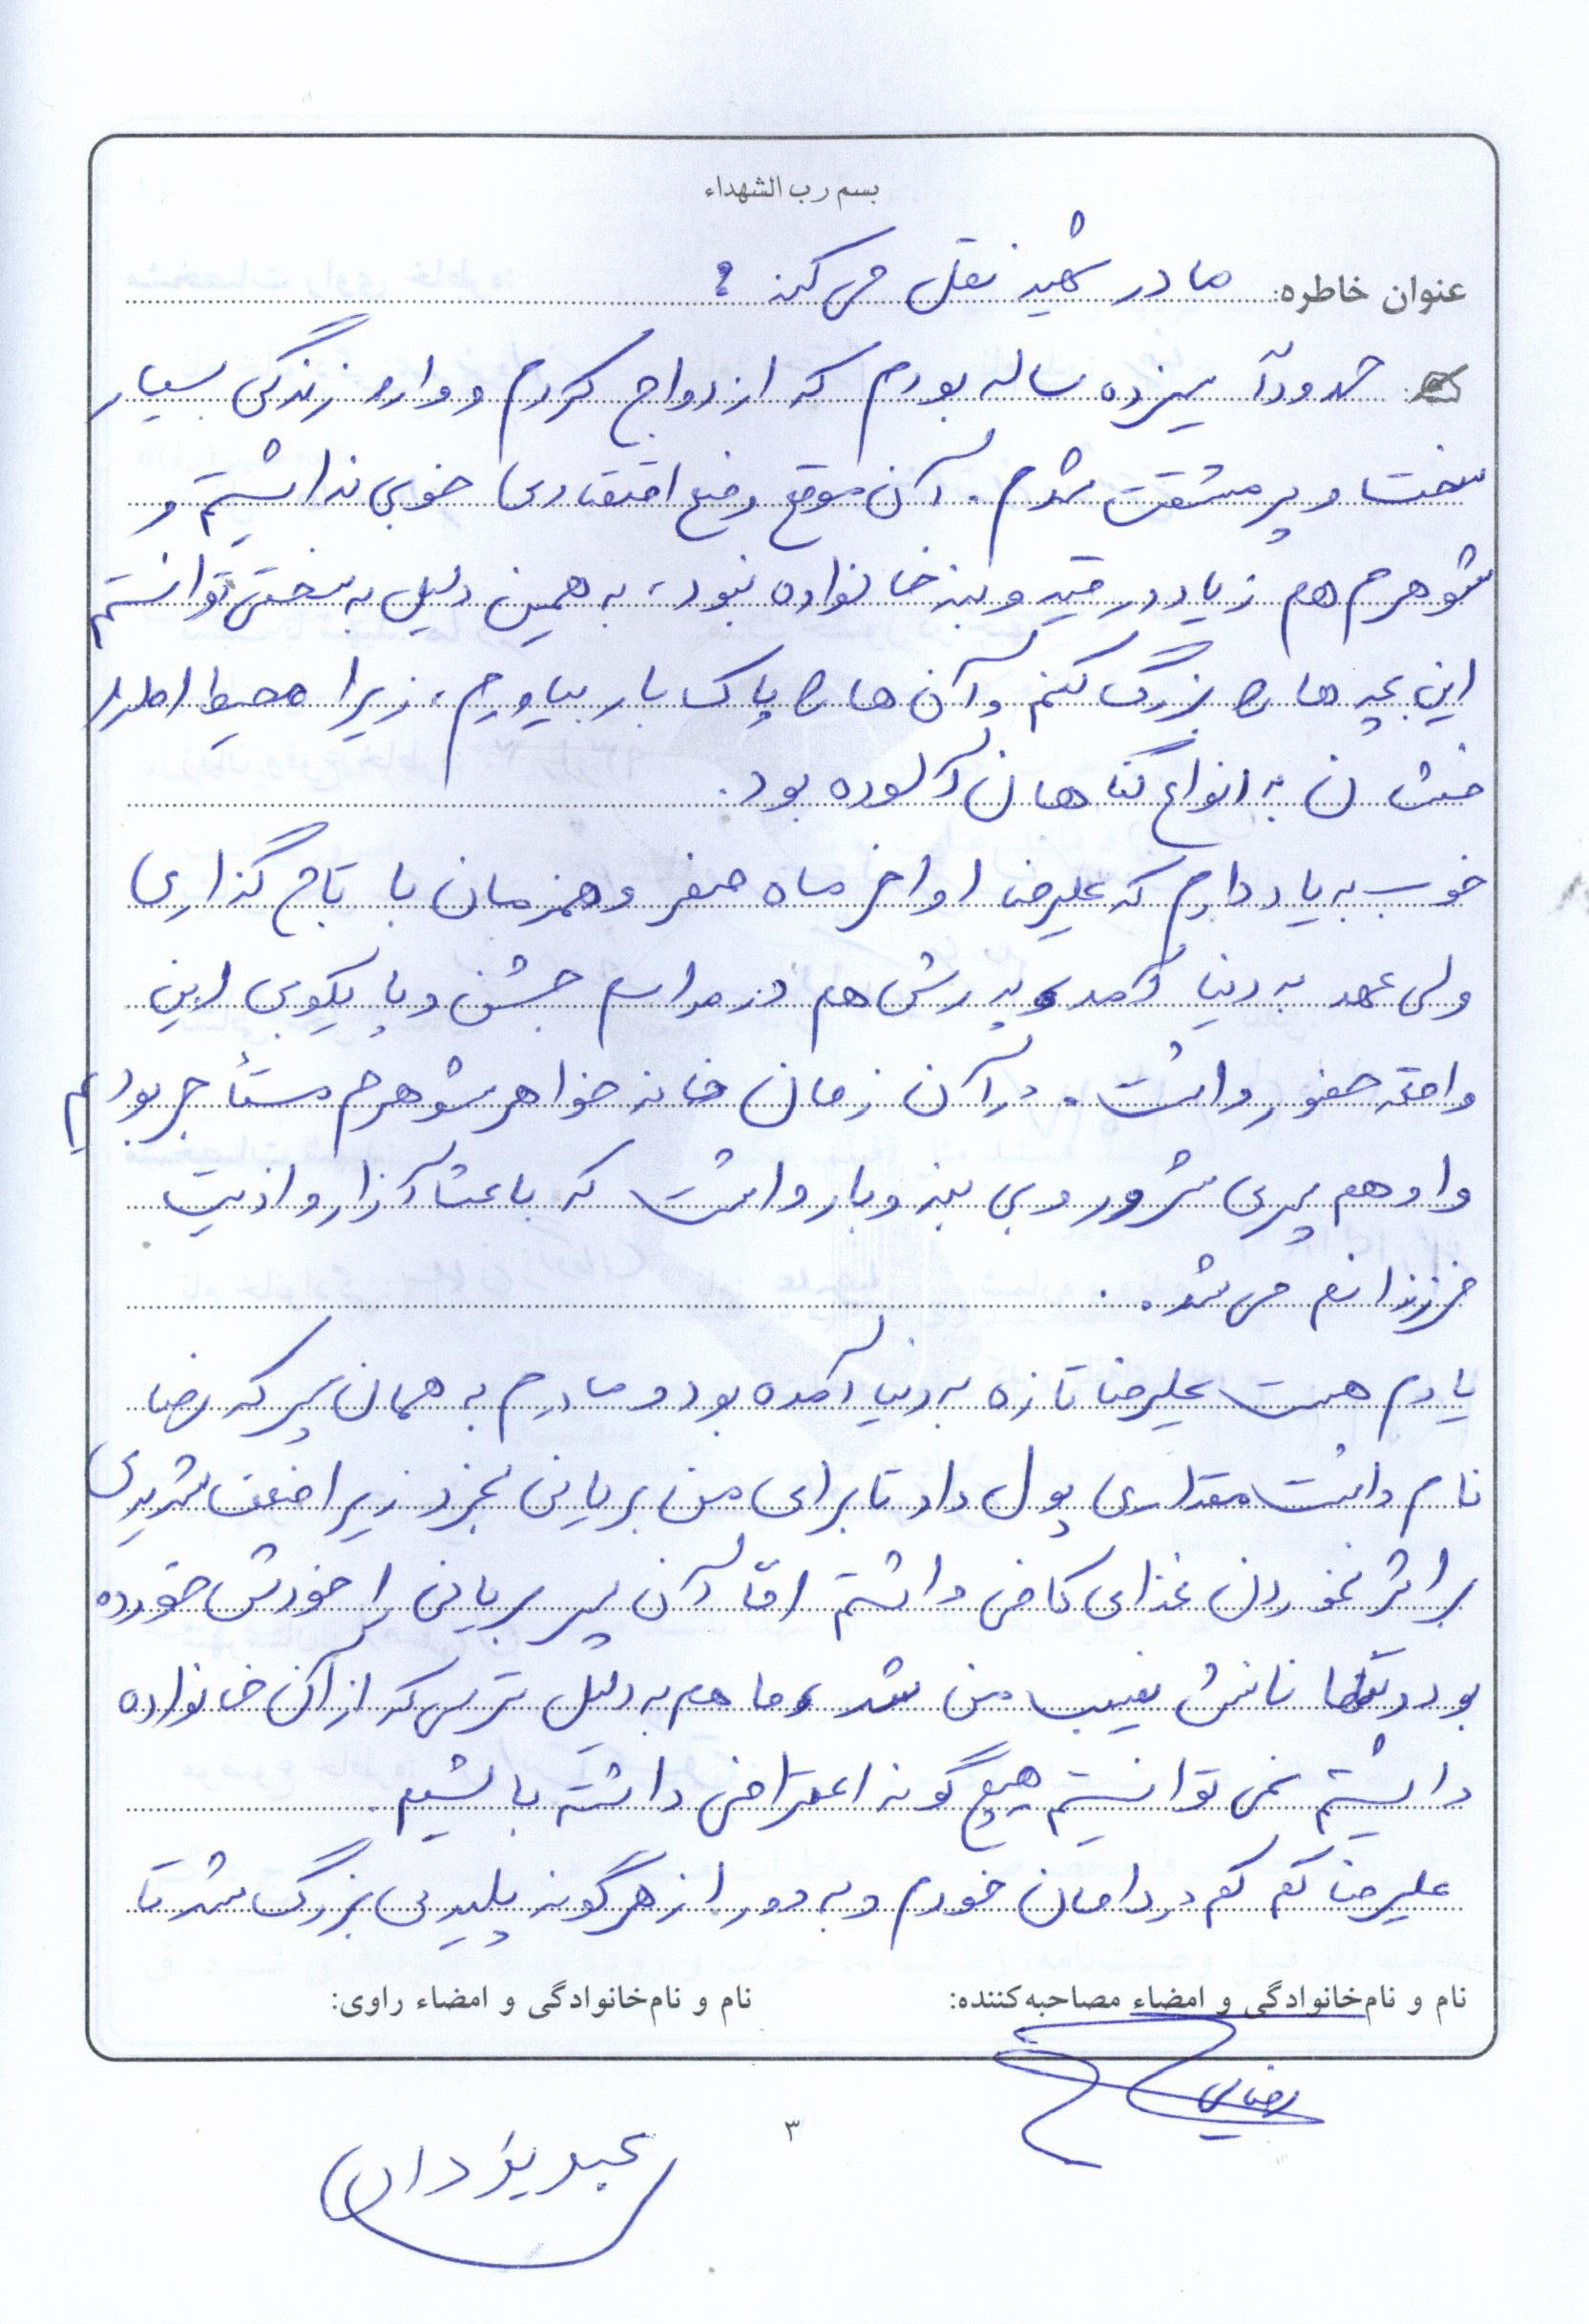 بسم رب الشهداء
عنوان خاطره: مادر شهید نقل می کند :
حدوداً سیزده ساله بودم که ازدواج کردم و وارد زندگی بسیار
سخت و پر مشقت شدم . آن موقع وضع اقتصادی خوبی نداشتیم و
شوهرم هم زیاد در قید و بند خانواده نبود، به همین دلیل به سختی توانستم
این بچه ها را بزرگ کنم و آن ها را پاک بار بیاورم، زیرا محیط اطراف
مان به انواع گناهان آلوده بود.
خوب به یاد دارم که علیرضا اواخر ماه صفر و همزمان با تاج گذاری
ولی عهد به دنیا آمد و پدرش هم در مراسم جشن و پایکوبی این
واقعه حضور داشت . در آن زمان خانه خواهر شوهرم مستأجر بودیم
و او هم پسری شرور و بی بند و بار داشت که باعث آزار و اذیت
فرزندانم می شد .
یادم هست علیرضا تازه به دنیا آمده بود و مادرم به همان پسر که رضا
نام داشت مقداری پول داد تا برای من بریانی بخرد زیرا ضعف شدیدی
بر اثر نخوردن غذای کافی داشتم امّا آن پسر بریانی را خودش خورده
بود و تنها نانش نصیب من شد و ما هم به دلیل ترسی که از آن خانواده
داشتیم نمی توانستیم هیچ گونه اعتراضی داشته باشیم.
علیرضا کم کم در دامان خودم و به دور از هرگونه پلیدی بزرگ شد تا
نام و نام‌خانوادگی و امضاء مصاحبه‌کننده: نام و نام‌خانوادگی و امضاء راوی:
رضایی
۳
عبد یزدان